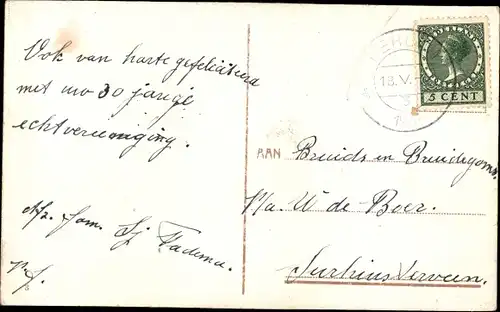 Ook van harte gefeliciteerd
met uw 30 jarige
echtvereeniging.
Afz. Fam. Sj Tadema.
NEDERLAND
18.V.
5 CENT
AAN Bruids en Bruidegom.
P/a. W de Boer.
Surhuisterveen.